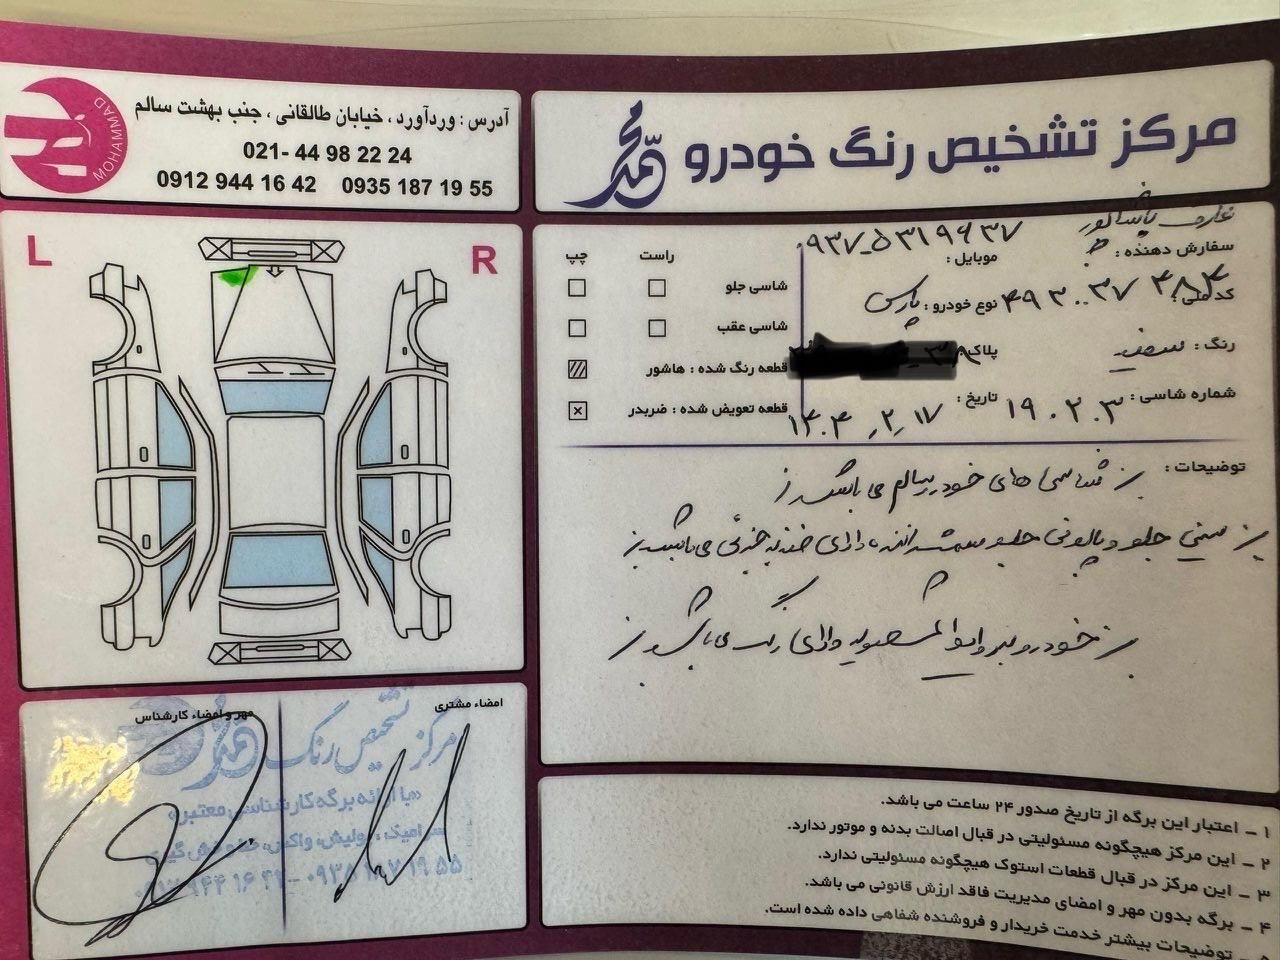 مرکز تشخیص رنگ خودرو محمد
MOHAMMAD
آدرس : وردآورد ، خیابان طالقانی ، جنب بهشت سالم
021- 44 98 22 24
0912 944 16 42   0935 187 19 55
L
R
سفارش دهنده :
موبایل : ۰۹۳۷-۵۳۱۹۶۳۷
کد ملی : ۴۹۳۰۰۳۷۴۸۴
نوع خودرو : پارس
رنگ : سفید
پلاک
شماره شاسی : ۱۹۰۲۰۳
تاریخ : ۱۴۰۴٫۲٫۱۷
راست
چپ
شاسی جلو
شاسی عقب
قطعه رنگ شده : هاشور
قطعه تعویض شده : ضربدر
توضیحات :
شاسی های خودرو سالم می باشد
سینی جلو و پالونی جلو سمت راننده دارای ضربه جزئی می باشد
خودرو دارای رنگ می باشد
امضاء مشتری
مهر و امضاء کارشناس
مرکز تشخیص رنگ محمد
با ارائه برگه کارشناسی معتبر
سرامیک، پولیش، واکس
۰۹۱۲ ۹۴۴ ۱۶ ۴۲ - ۰۹۳۵ ۱۸۷ ۱۹ ۵۵
۱ - اعتبار این برگه از تاریخ صدور ۲۴ ساعت می باشد.
۲ - این مرکز هیچگونه مسئولیتی در قبال اصالت بدنه و موتور ندارد.
۳ - این مرکز در قبال قطعات استوک هیچگونه مسئولیتی ندارد.
۴ - برگه بدون مهر و امضای مدیریت فاقد ارزش قانونی می باشد.
۵ - توضیحات بیشتر خدمت خریدار و فروشنده شفاهی داده شده است.